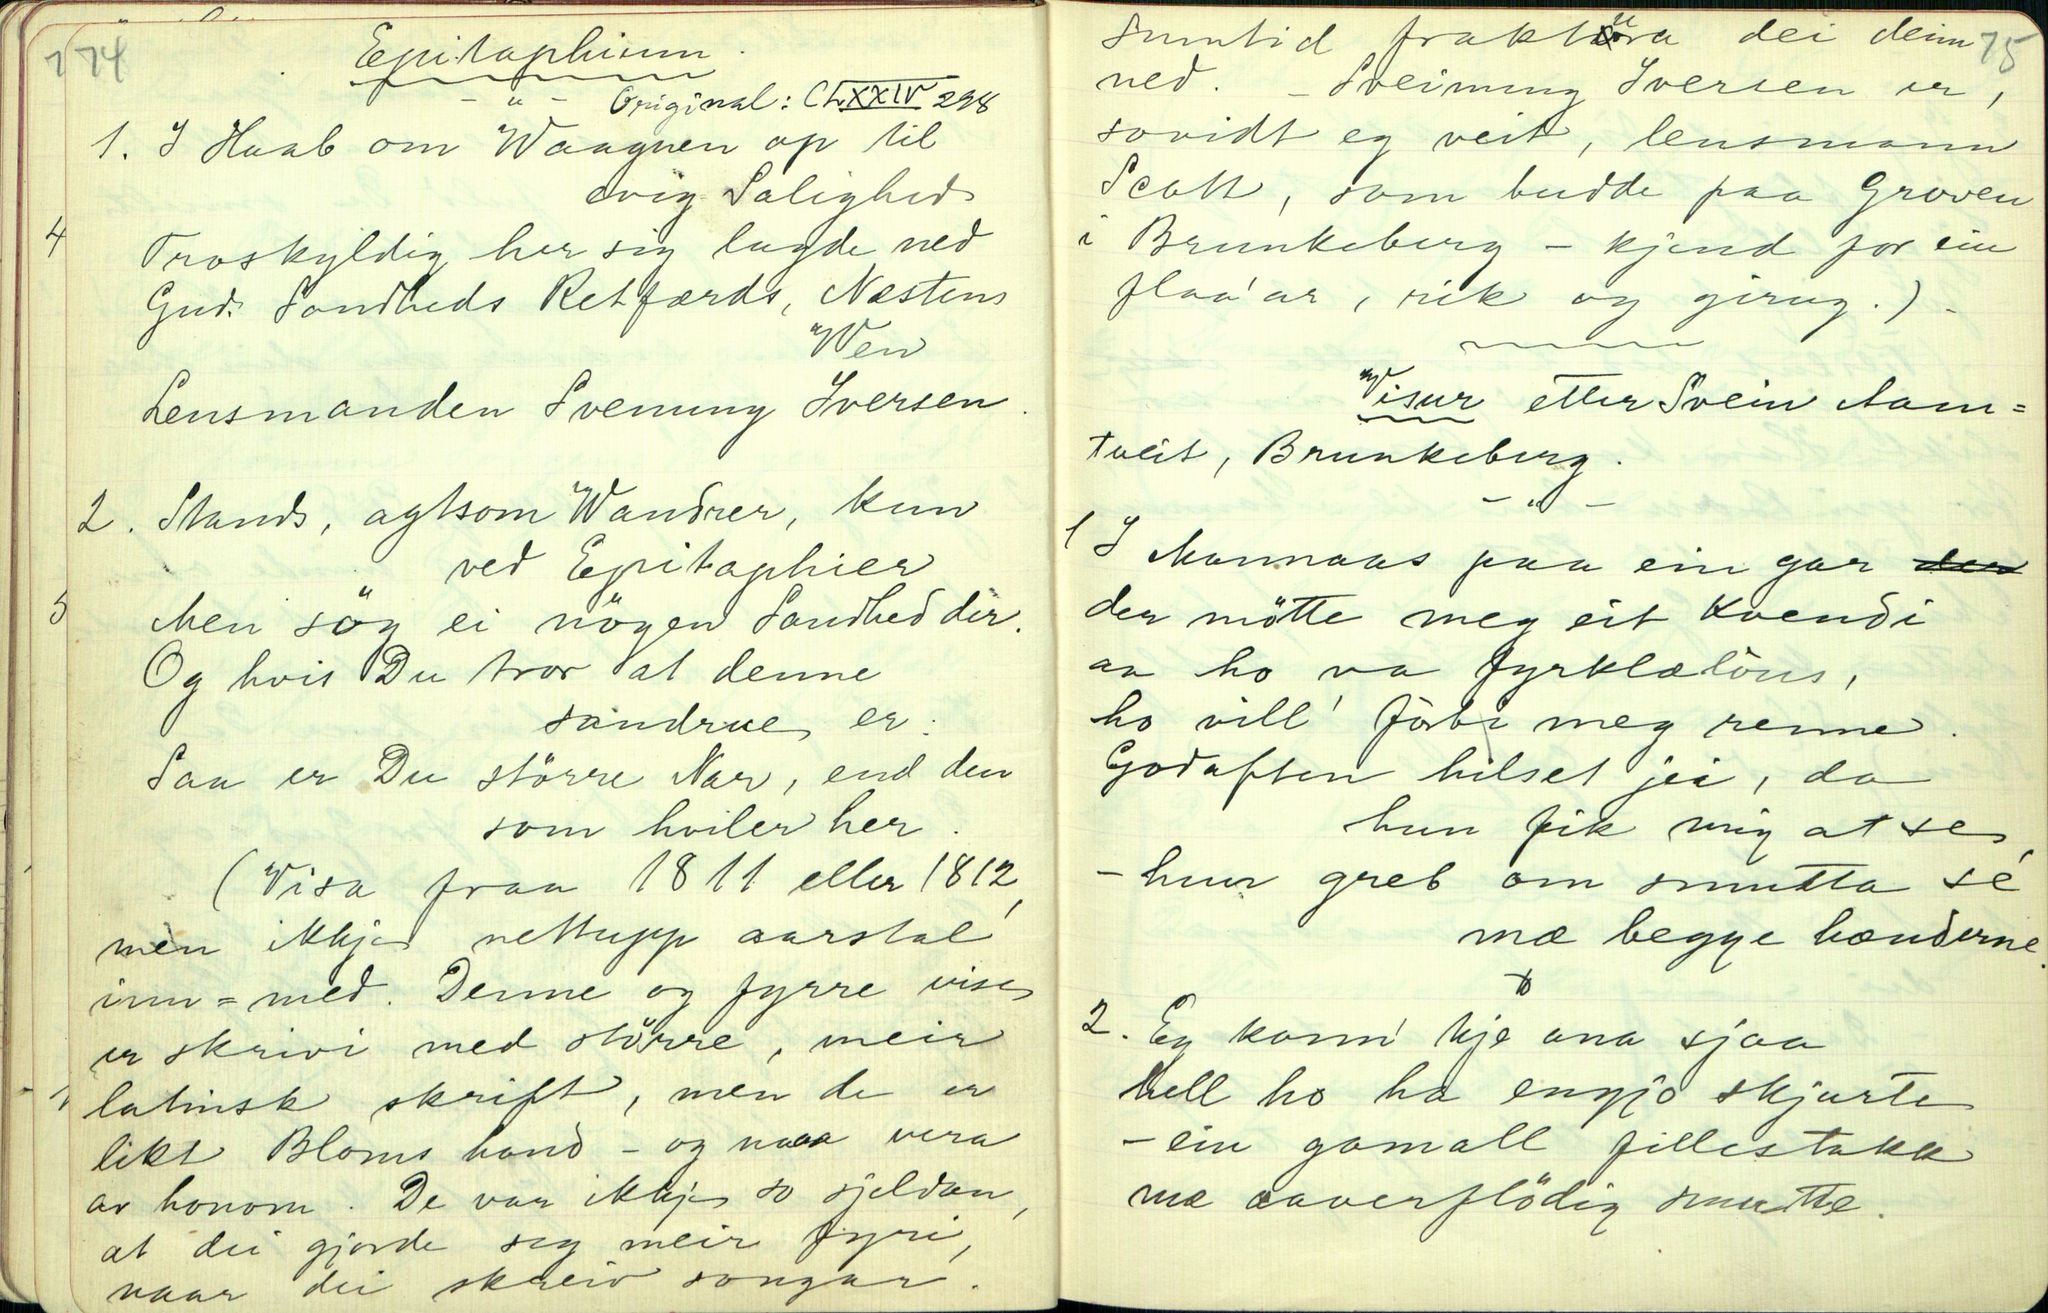 174
Epitaphium.
- " - Original: CLXXIV 298
1. I Haab om Waagnen op til
evig Salighed
4
Troskyldig her sig lagde ned
Guds Sandheds Retfærds, Næstens
Wen
Lensmanden Svenung Iversen.
2. Stands, agtsom Wandrer, kun
ved Epitaphier
5
Men søg ei nögen Sandhed der.
Og hvis Du tror at denne
sandrue er:
Saa er Du större Nar, end den
som hviler her.
(Visa fraa 1811 eller 1812,
men ikkje nettupp aarstal
inn=med. Denne og fyrre visa
er skrivi med större, meir
latinsk skrift, men de er
likt Bloms hand - og maa vera
av honom. De var ikkje so sjeldan,
at dei gjorde seg meir fyri,
naar dei skreiv songar.
75
Sumtid fraktura dei deim
ned. - Sveinung Iversen er,
sovidt eg veit, lensmann
Scott, som budde paa Groven
i Brunkeberg - kjend for ein
flaa'ar, rik og girug.) -
Visur etter Svein Aam=
tveit, Brunkeberg.
- " -
1 I Mannaas paa ein gar den
der mötte meg eit Kvendi
aa ho va fyrklælöus,
ho vill' förbi meg renne.
Godaften hilset jei, da
hun fik mig at se,
- hun greb om smutta sé
mæ begge hænderne.
2. Eg kann' kje ana sjaa
hell ho ha engjo skjurte
- ein gamall fillestakk
mæ aaverflödig smutte.